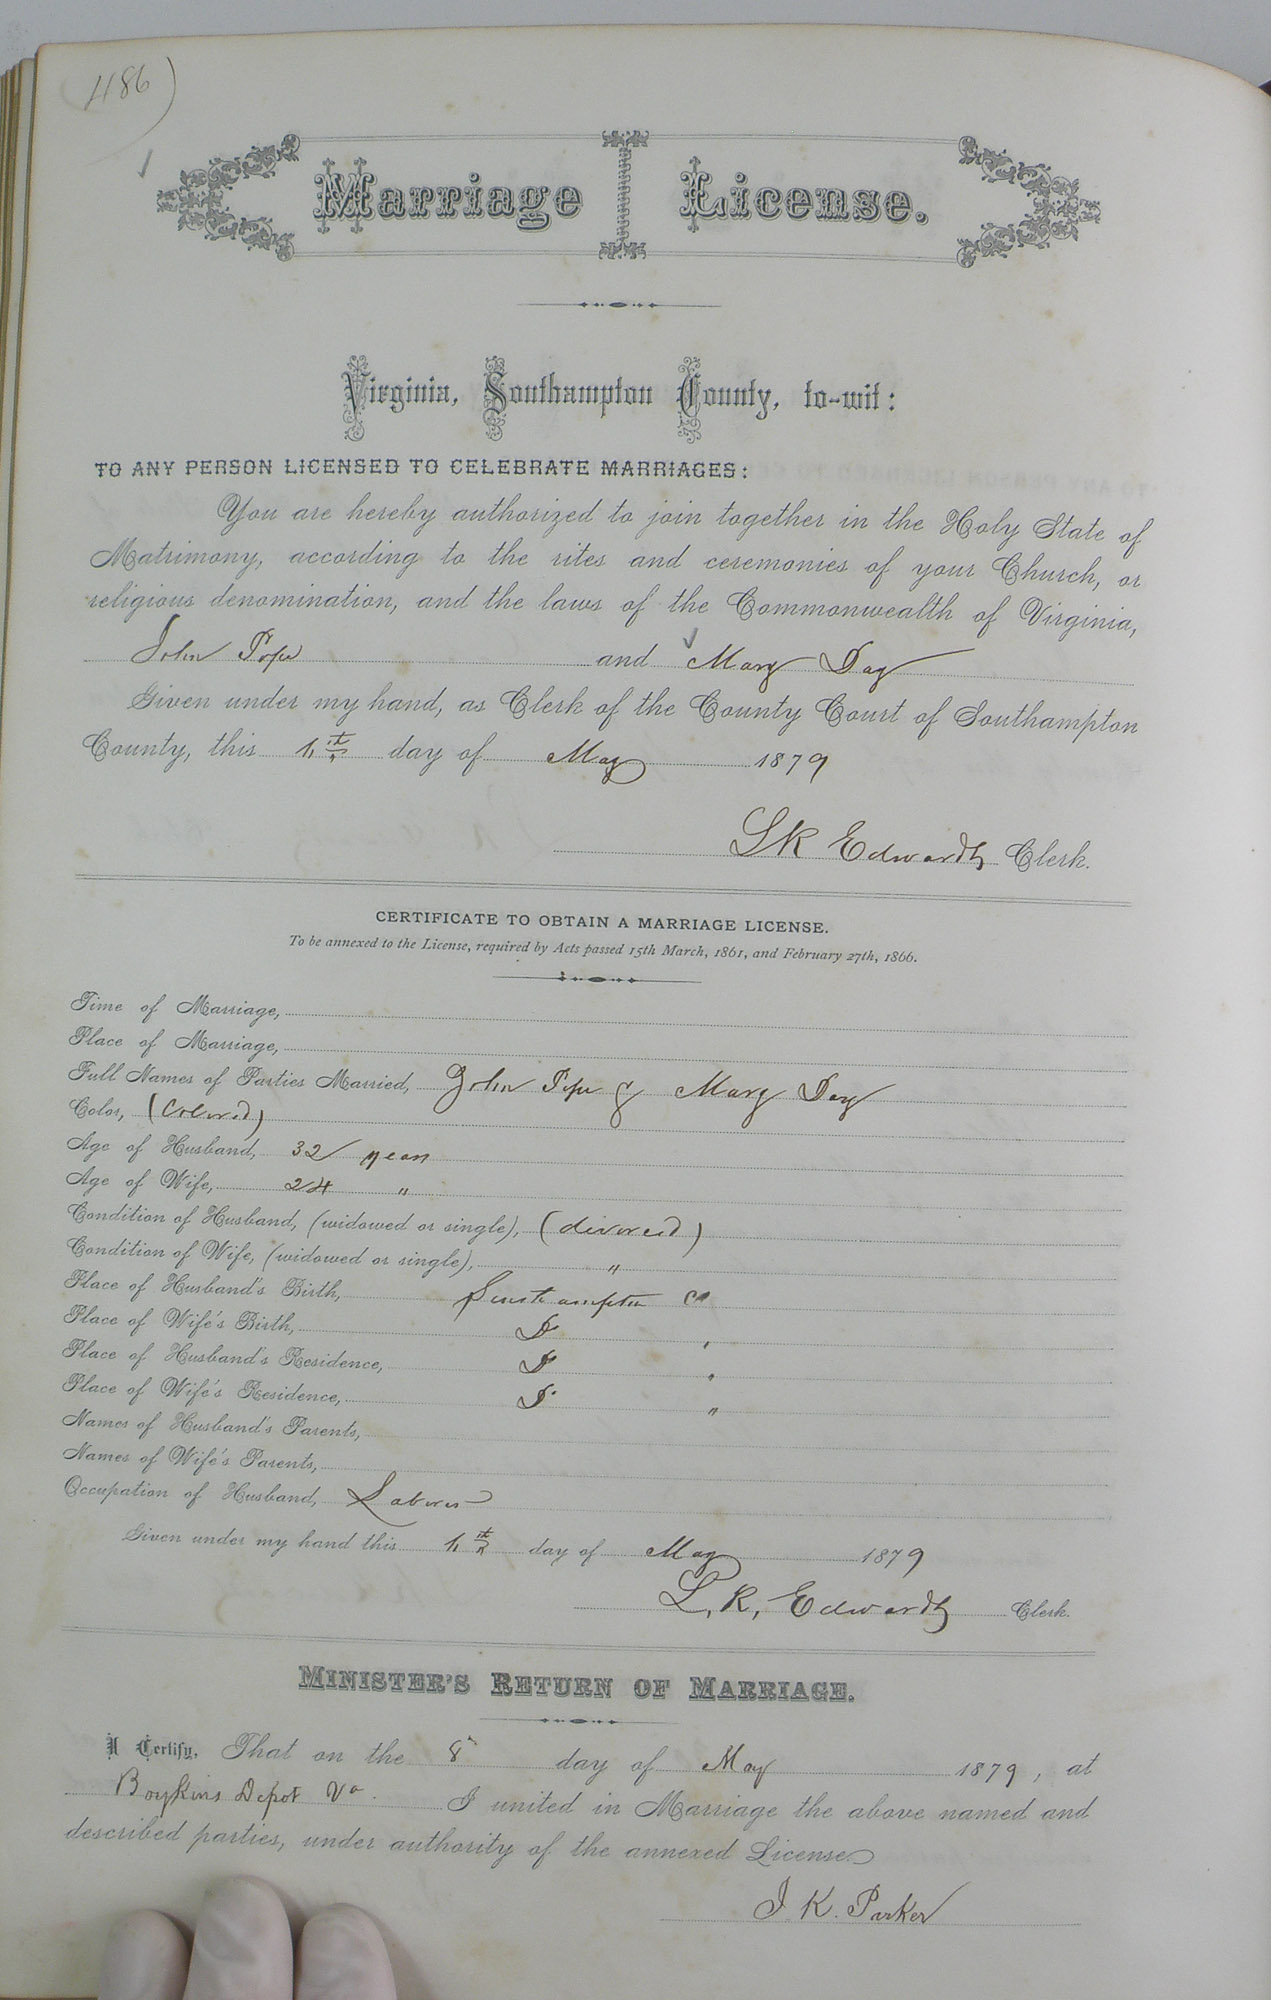 486)
Marriage License.
Virginia, Southampton County, to-wit:
TO ANY PERSON LICENSED TO CELEBRATE MARRIAGES:
You are hereby authorized to join together in the Holy State of
Matrimony, according to the rites and ceremonies of your Church, or
religious denomination, and the laws of the Commonwealth of Virginia,
John Pope and Mary Day
Given under my hand, as Clerk of the County Court of Southampton
County, this th day of May 1879
L K Edwards Clerk.
CERTIFICATE TO OBTAIN A MARRIAGE LICENSE.
To be annexed to the License, required by Acts passed 15th March, 1861, and February 27th, 1866.
Time of Marriage,
Place of Marriage,
Full Names of Parties Married, John Pope & Mary Day
Color, (Colored)
Age of Husband, 32 years
Age of Wife, 24 "
Condition of Husband, (widowed or single), (divorced)
Condition of Wife, (widowed or single), "
Place of Husband's Birth, Southampton Co
Place of Wife's Birth, Do "
Place of Husband's Residence, Do "
Place of Wife's Residence, Do "
Names of Husband's Parents,
Names of Wife's Parents,
Occupation of Husband, Laborer
Given under my hand this th day of May 1879
L. K. Edwards Clerk.
MINISTER'S RETURN OF MARRIAGE.
I Certify, That on the 8 day of May 1879, at
Boykins Depot Va. I united in Marriage the above named and
described parties, under authority of the annexed License.
J. K. Parker